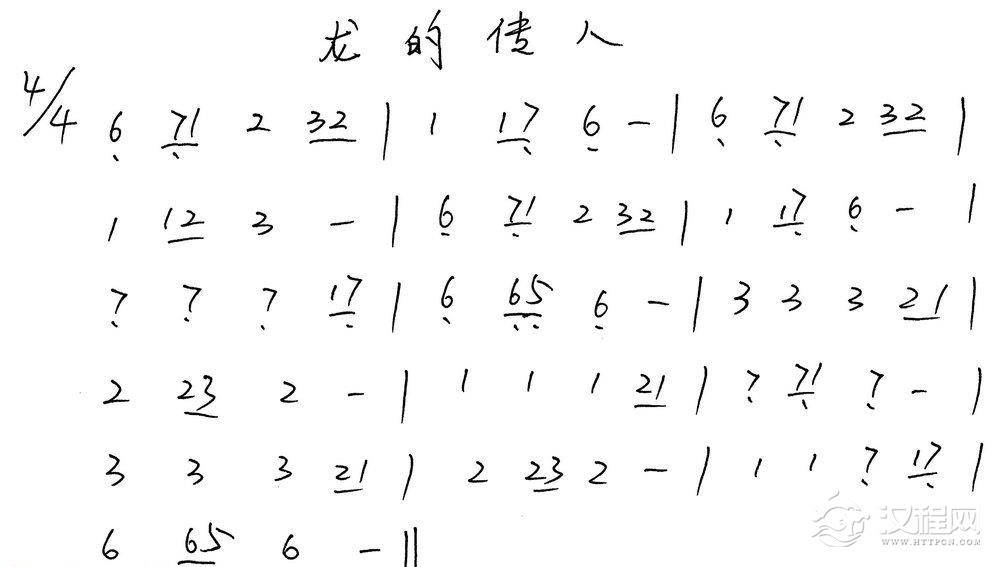 龙的传人
4/4 6̣ 7̣1 2 32 | 1 17̣ 6̣ - | 6̣ 7̣1 2 32 |
1 12 3 - | 6̣ 7̣1 2 32 | 1 17̣ 6̣ - |
7̣ 7̣ 7̣ 17̣ | 6̣ 6̣5̣ 6̣ - | 3 3 3 21 |
2 23 2 - | 1 1 1 21 | 7̣ 7̣1 7̣ - |
3 3 3 21 | 2 23 2 - | 1 1 7̣ 17̣ |
6 65 6 - ||
汉程网
WWW.HTTPCN.COM